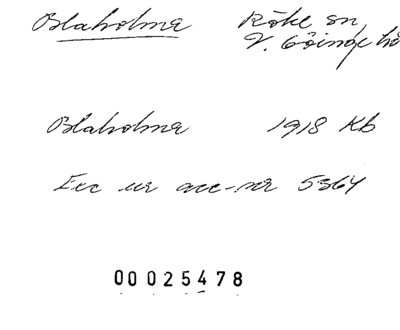 Blaholma Röke sn,
V. Göinge hd
Blaholma 1918 Kb
Exc ur acc-nr 5364
00025478